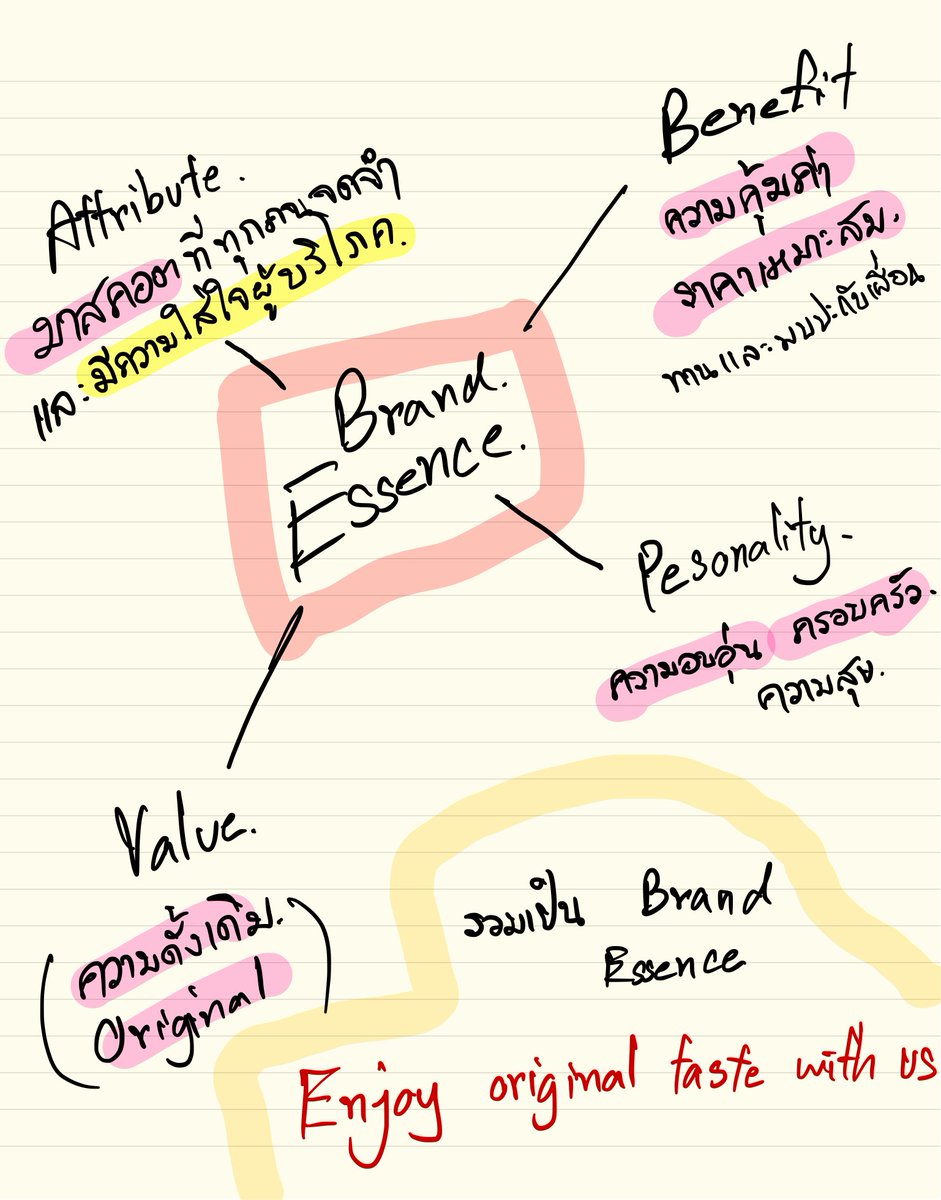 Attribute.
มาสคอตที่ทุกคนจดจำ
และมีความใส่ใจผู้บริโภค.
Benefit
ความคุ้มค่า
ราคาเหมาะสม.
ทานและพบปะกับเพื่อน
Brand.
Essence.
Pesonality-
ความอบอุ่น ครอบครัว.
ความสุข.
Value.
(ความดั้งเดิม.
Original)
รวมเป็น Brand
Essence
Enjoy original taste with us